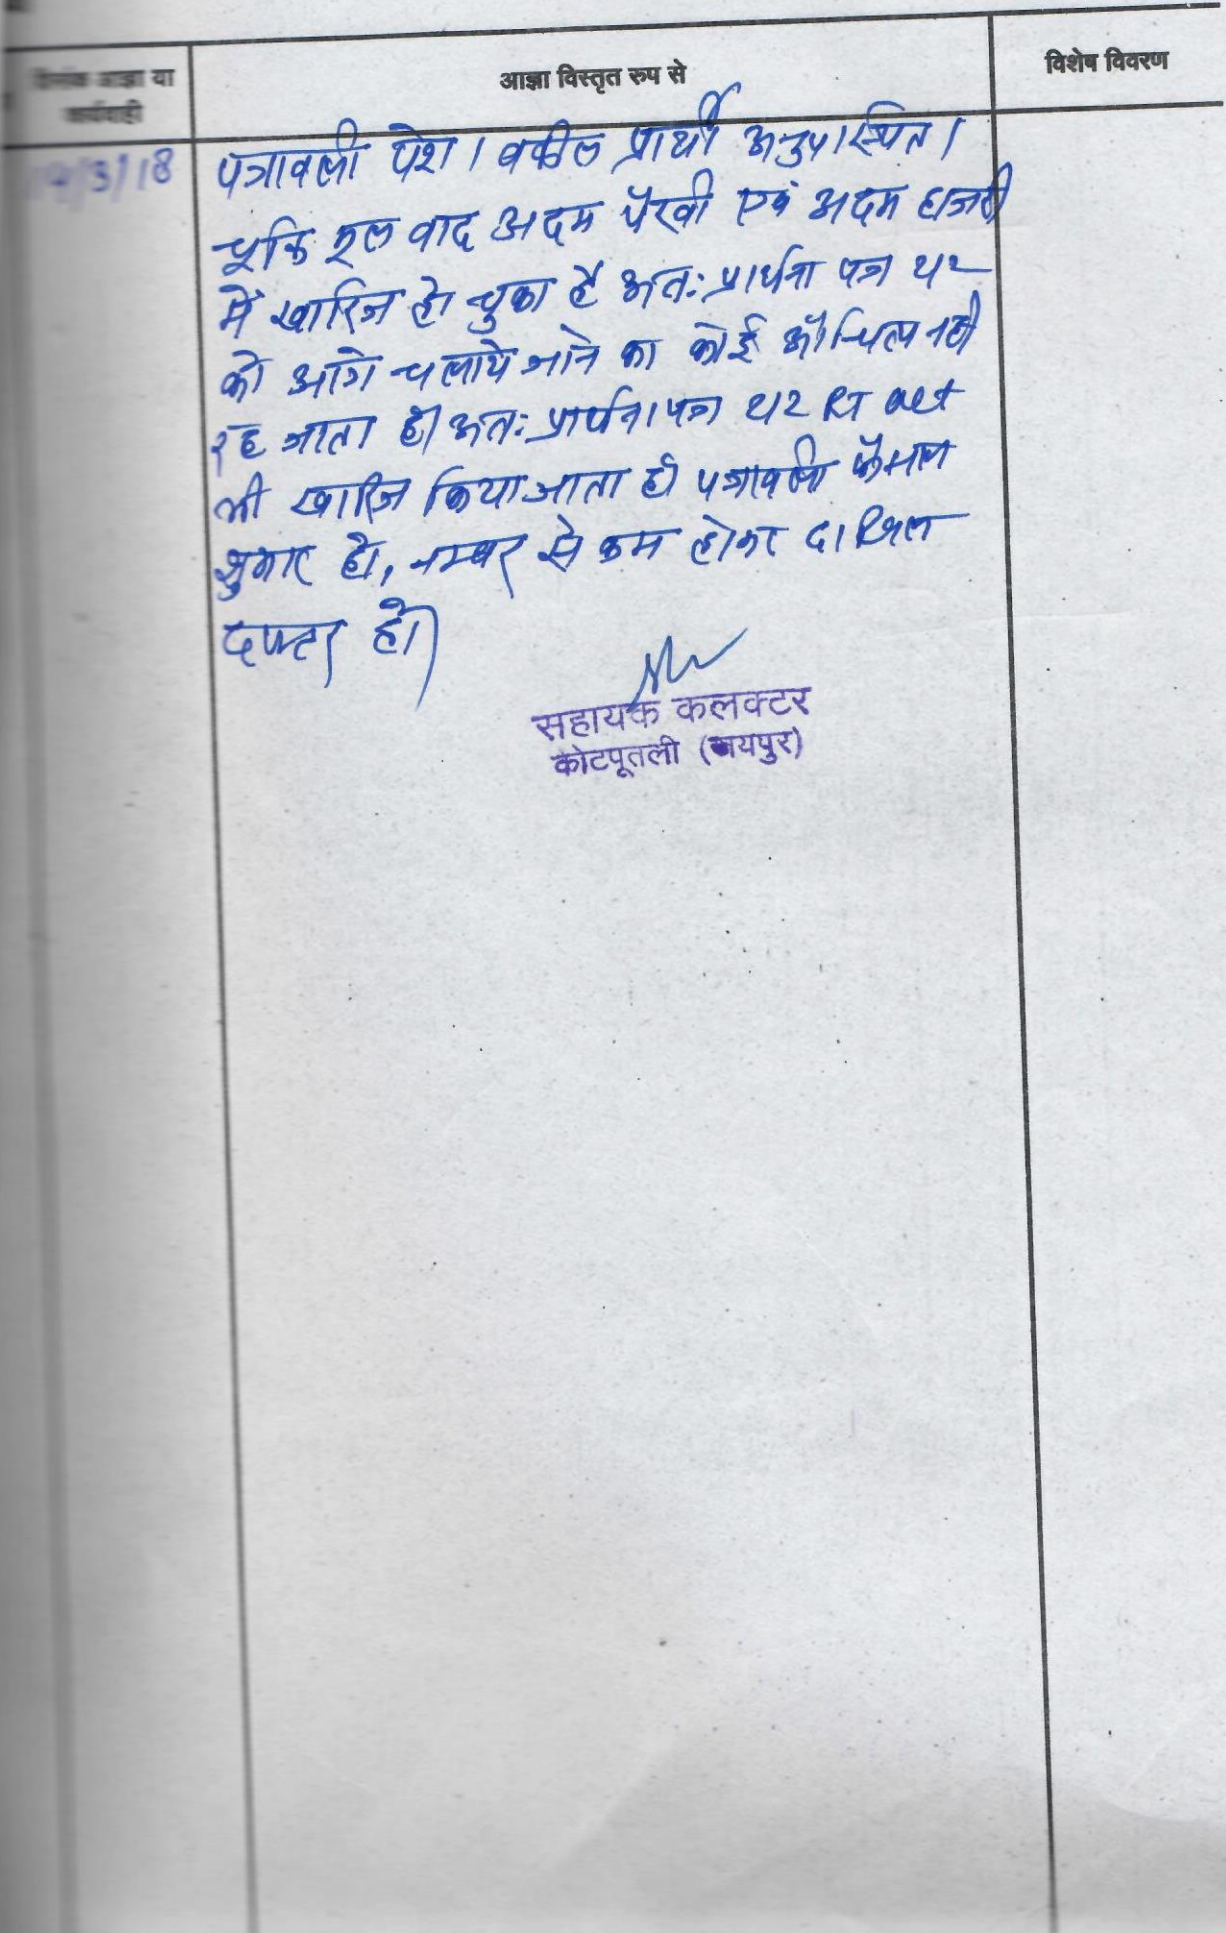 दिनांक आज्ञा या
कार्यवाही
आज्ञा विस्तृत रुप से
विशेष विवरण
/3/18
पत्रावली पेश। वकील प्रार्थी अनुपस्थित।
चूकि मूल वाद अदम पैरवी एवं अदम हाजरी
में खारिज हो चुका है अतः प्रार्थना पत्र 212
को आगे चलाये जाने का कोई औचित्य नही
रह जाता है। अतः प्रार्थना पत्र 212 RT act
भी खारिज किया जाता है। पत्रावली फैसल
शुमार हो, नम्बर से कम होकर दाखिल
दफ्तर हो।
सहायक कलक्टर
कोटपूतली (जयपुर)